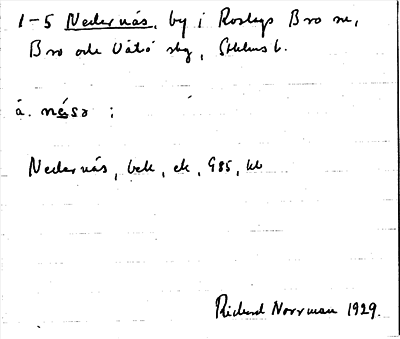 1-5 Nedernäs, by i Roslags Bro sn,
Bro och Vätö skg, Sthlms l.
å. nésə :
Nedernäs, bek, ek, G85, kb
Rickard Norrman 1929.